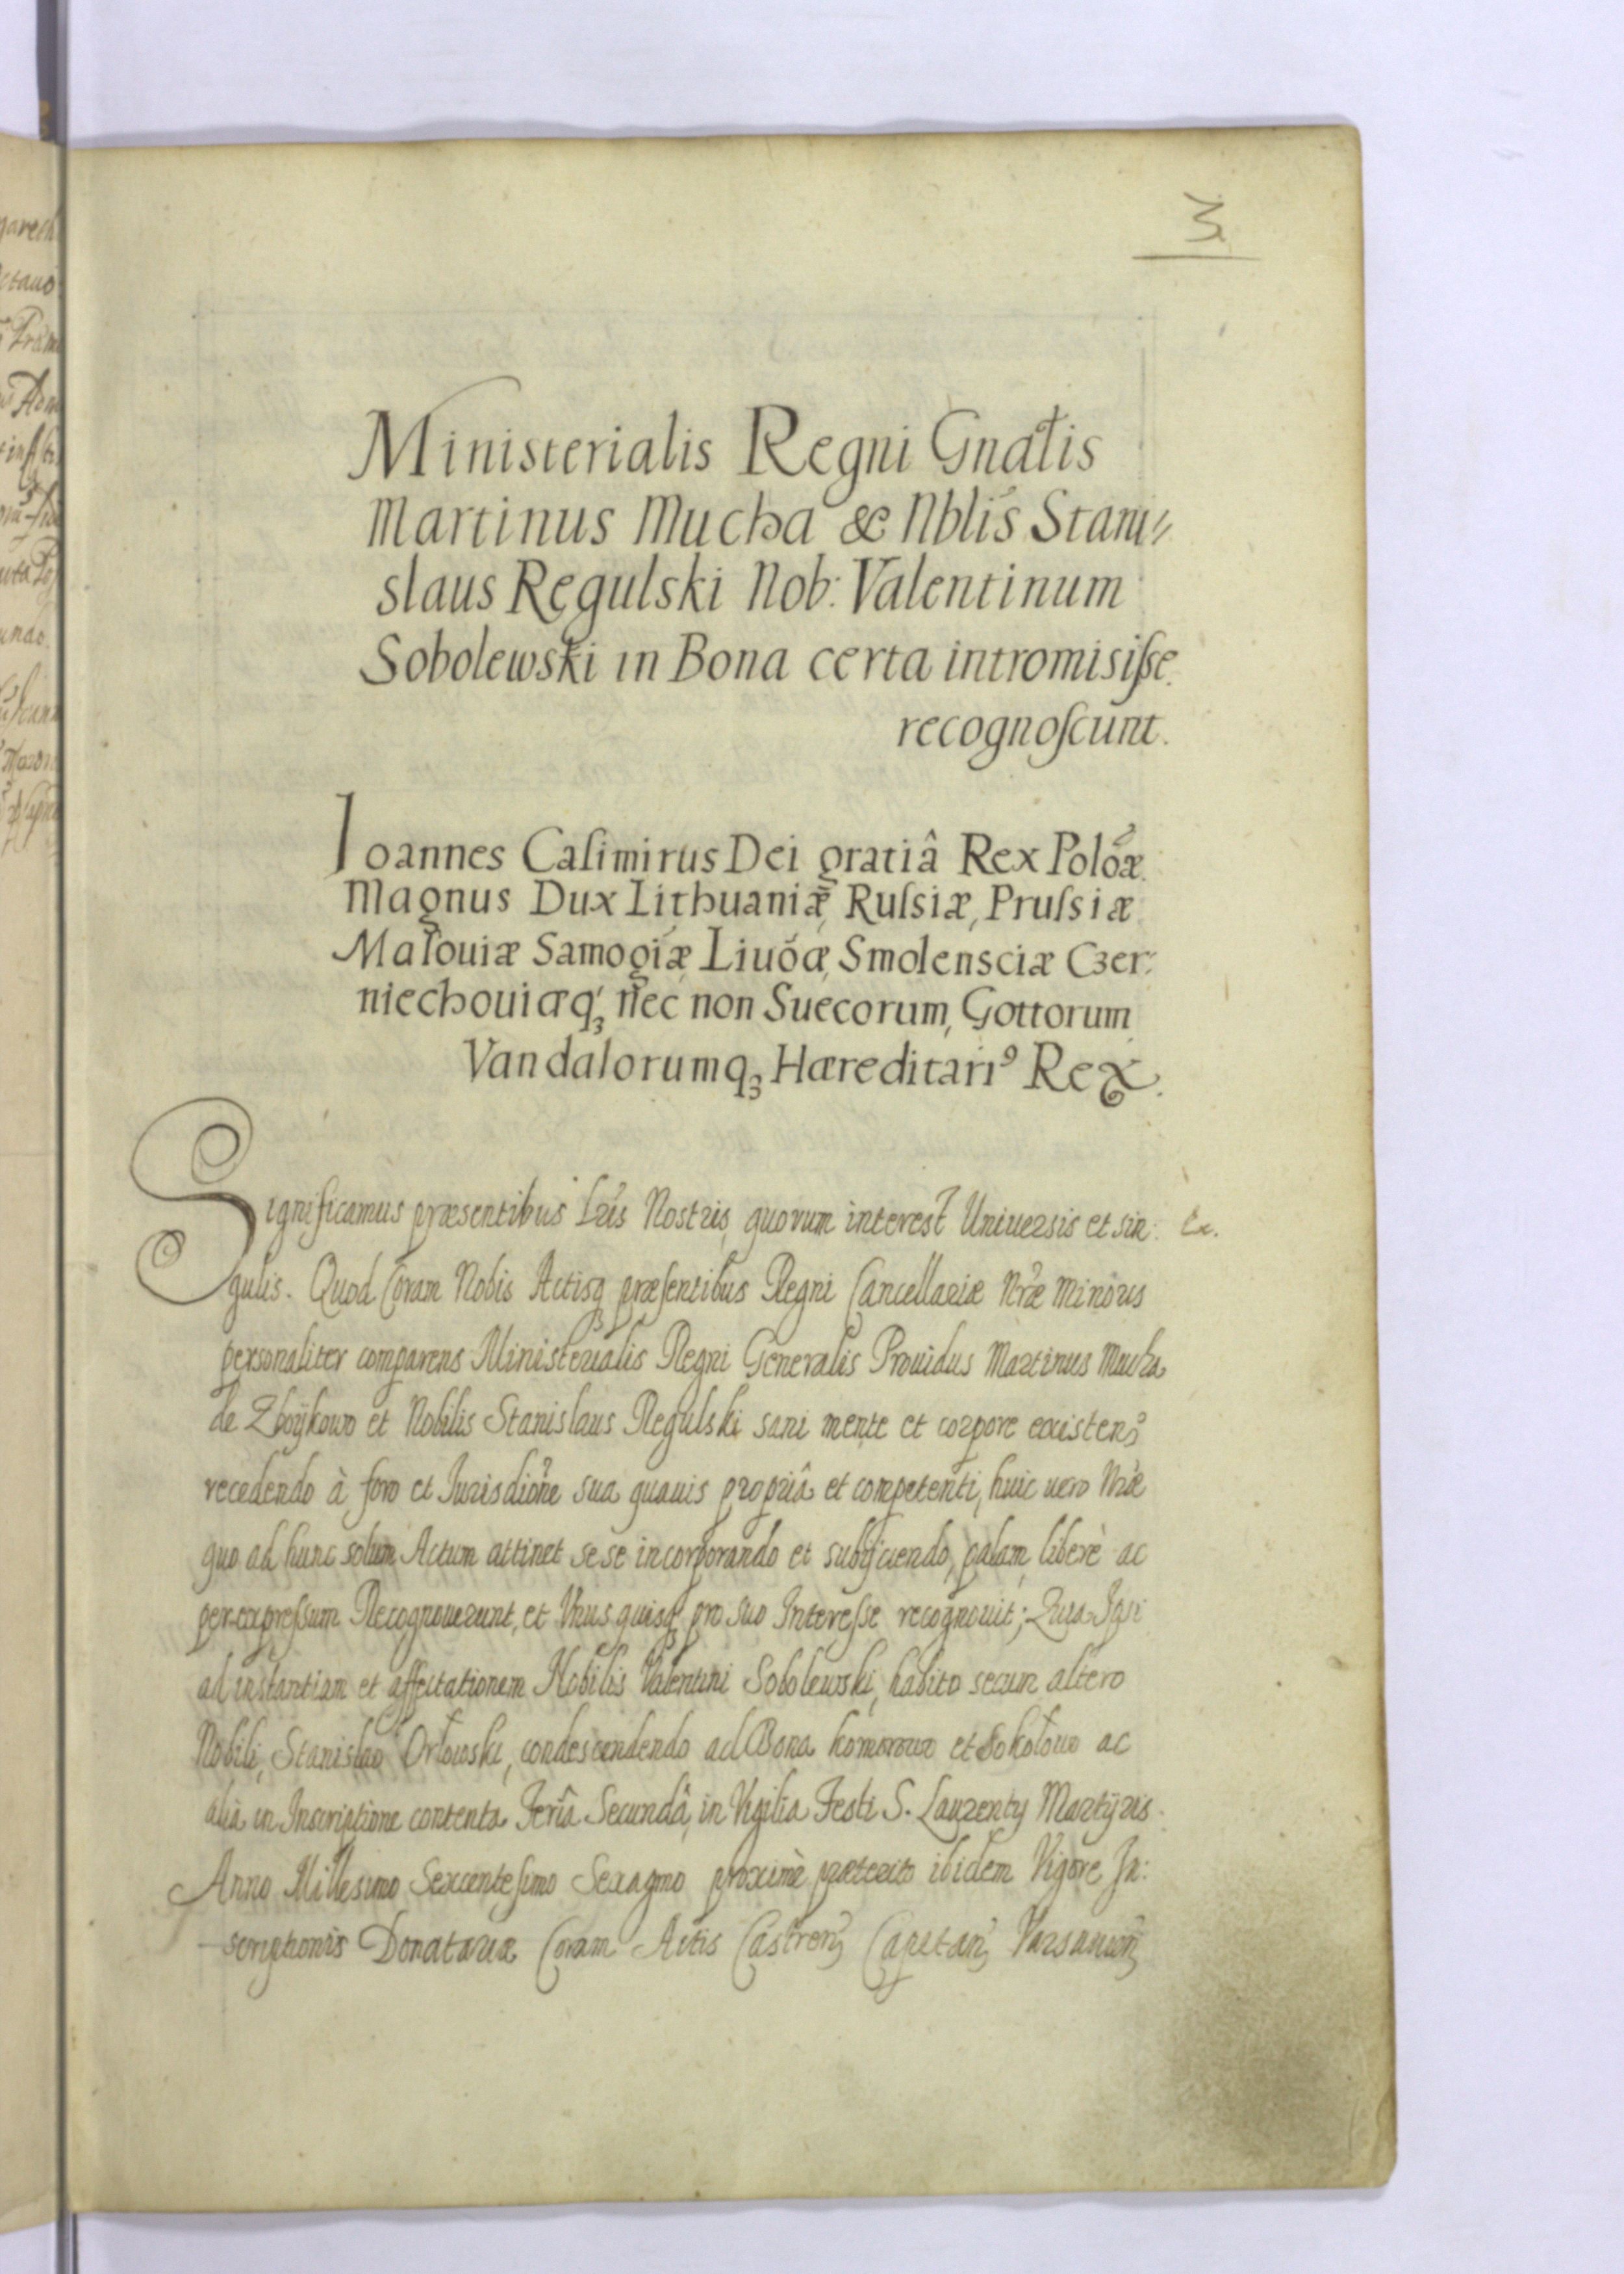 3
Ministerialis Regni Gnalis
Martinus Mucha & Nblis Stani⸗
slaus Regulski Nob: Valentinum
Sobolewski in Bona certa intromisiſse
recognoſcunt.
Ioannes Caſimirus Dei gratiâ Rex Polõæ
Magnus Dux Lithuaniæ, Ruſsiæ, Pruſsiæ
Maſouiæ Samogiæ, Liuõæ, Smolensciæ Czer:
niechouiæq3, nec non Suecorum, Gottorum
Vandalorumq3 Hæreditari9 Rex.
Significamus præsentibus Lris Nostris, quorum interest Universis et sin: Ex.
gulis. Quod Coram Nobis Actisq præſentibus Regni Cancellariæ Nræ Minoris
personaliter comparens Ministerialis Regni Generalis Prouidus Martinus Mucha
de Zboÿkowo et Nobilis Stanislaus Regulski sani mente et corpore existen3
recedendo à foro et Jurisdione sua quauis propriâ et competenti, huic uero Nræ
quo ad hunc solum Actum attinet se se incorporando et subijciendo, palam, liberè ac
per expreſsum Recognouerunt, et Vnus quisq3 pro suo Intereſse recognouit; Quia Ipsi
ad instantiam et affectationem Nobilis Valentini Sobolewski, habito secum altero
Nobili, Stanislao Orłowski, condescendendo ad Bona Komorowo et Sokołowo ac
alia in Inscriptione contenta Feriâ Secundâ, in Vigilia Festi S. Laurenty Martÿris
Anno Millesimo Sexcenteſimo Sexagmo proximè præterito ibidem Vigore In:
scriptionis Donatoriæ Coram Actis Castren3 Capitan3 Varsauien3